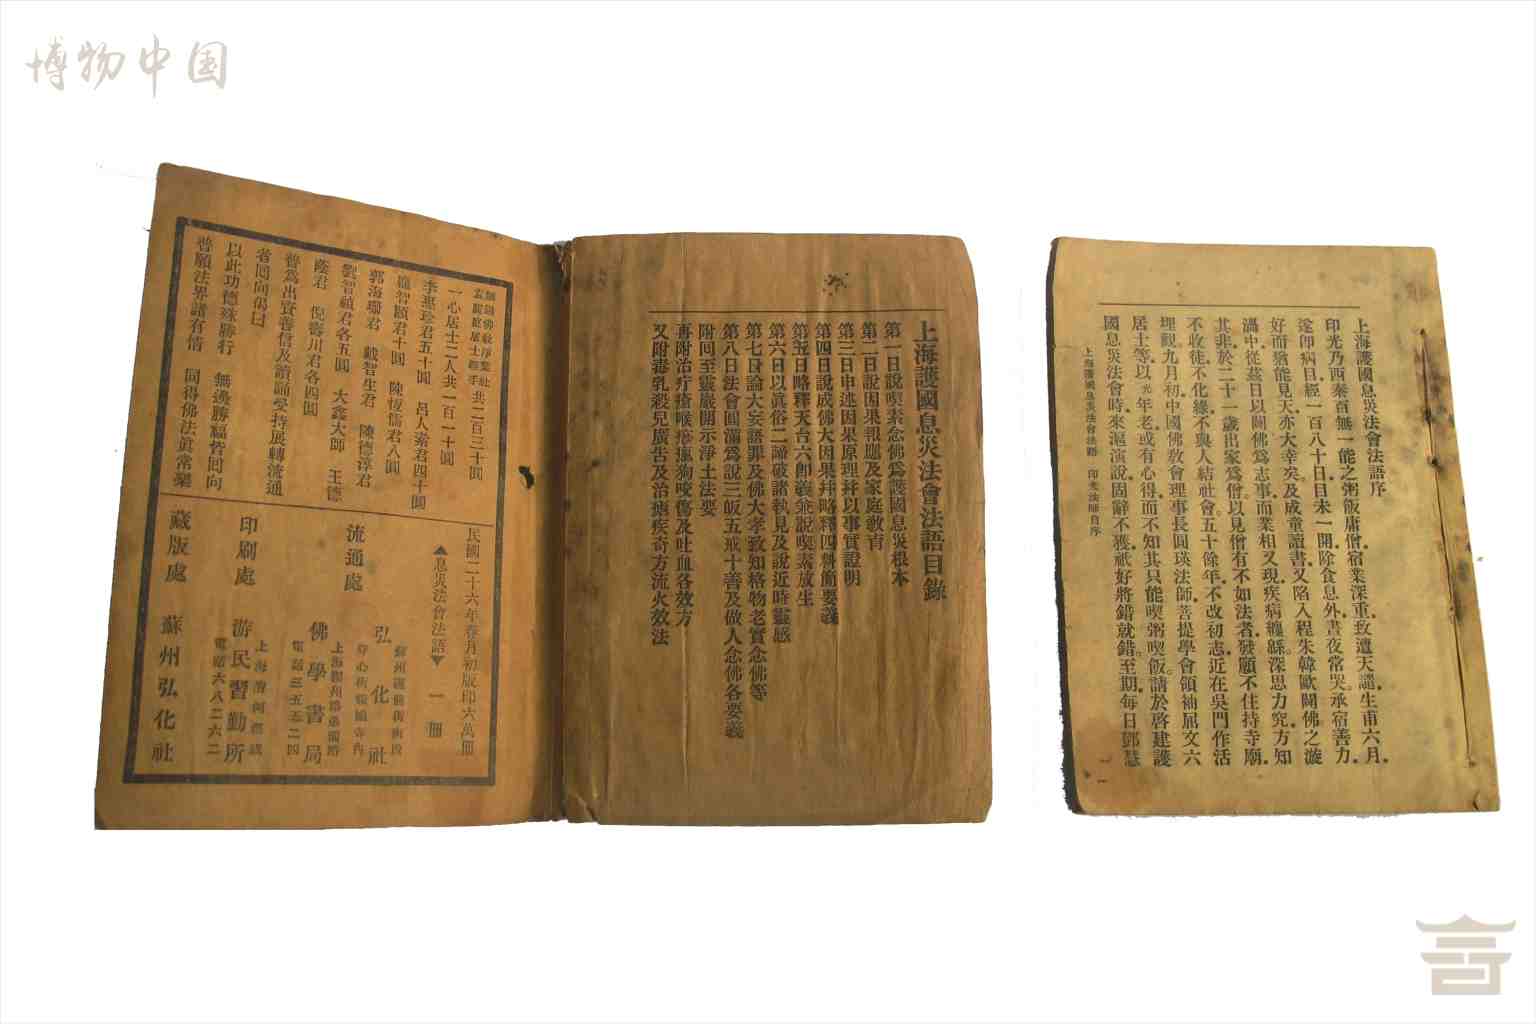 博物中国
上海護國息災法會法語序
印光乃西秦百無一能之粥飯庸僧宿業深重致遭天譴生甫六月
遂卽病目經一百八十日目未一開除食息外晝夜常哭承宿善力
好而猶能見天亦大幸矣及成童讀書又陷入程朱韓歐闢佛之漩
渦中從茲日以闢佛爲志事而業相又現疾病纏緜深思力究方知
其非於二十一歲出家爲僧以見僧有不如法者發願不住持寺廟
不收徒不化緣不與人結社會五十餘年不改初志近在吳門作活
埋觀九月初中國佛敎會理事長圓瑛法師菩提學會領袖屈文六
居士等以光年老或有心得而不知其只能喫粥喫飯請於啓建護
國息災法會時來滬演說固辭不獲祇好將錯就錯至期每日鄧慧
上海護國息災法會法語 印光法師自序 一
上海護國息災法會法語目錄
第一日說喫素念佛爲護國息災根本
第二日說因果報應及家庭敎育
第三日申述因果原理幷以事實證明
第四日說成佛大因果幷略釋四料簡要義
第五日略釋天台六卽義兼說喫素放生
第六日以眞俗二諦破諸執見及說近時靈感
第七日論大妄語罪及佛大孝致知格物老實念佛等
第八日法會圓滿爲說三皈五戒十善及做人念佛各要義
附回至靈巖開示淨土法要
再附治疔瘡喉痧瘋狗咬傷及吐血各效方
又附毒乳殺兒廣告及治瘧疾奇方流火效法
佛敎淨業社共二百三十圓
居士經手
一心居士二人共一百一十圓
李墨珍君五十圓 呂人素君四十圓
羅智願君十圓 陳恆儒君八圓
郭海珊君 戴智生君 陳德淳君
劉智禎君各五圓 大鑫大師 王德
蔭君 倪壽川君各四圓
普爲出資善信及讀誦受持展轉流通
者回向偈曰
以此功德殊勝行 無邊勝福皆回向
普願法界諸有情 同得佛法眞常樂
民國二十六年春月初版印六萬冊
▲息災法會法語▼ 一冊
流通處
弘化社
佛學書局
電話三五五二四
印刷處 游民習勤所
上海漕河涇
電話六八二六二
藏版處 蘇州弘化社